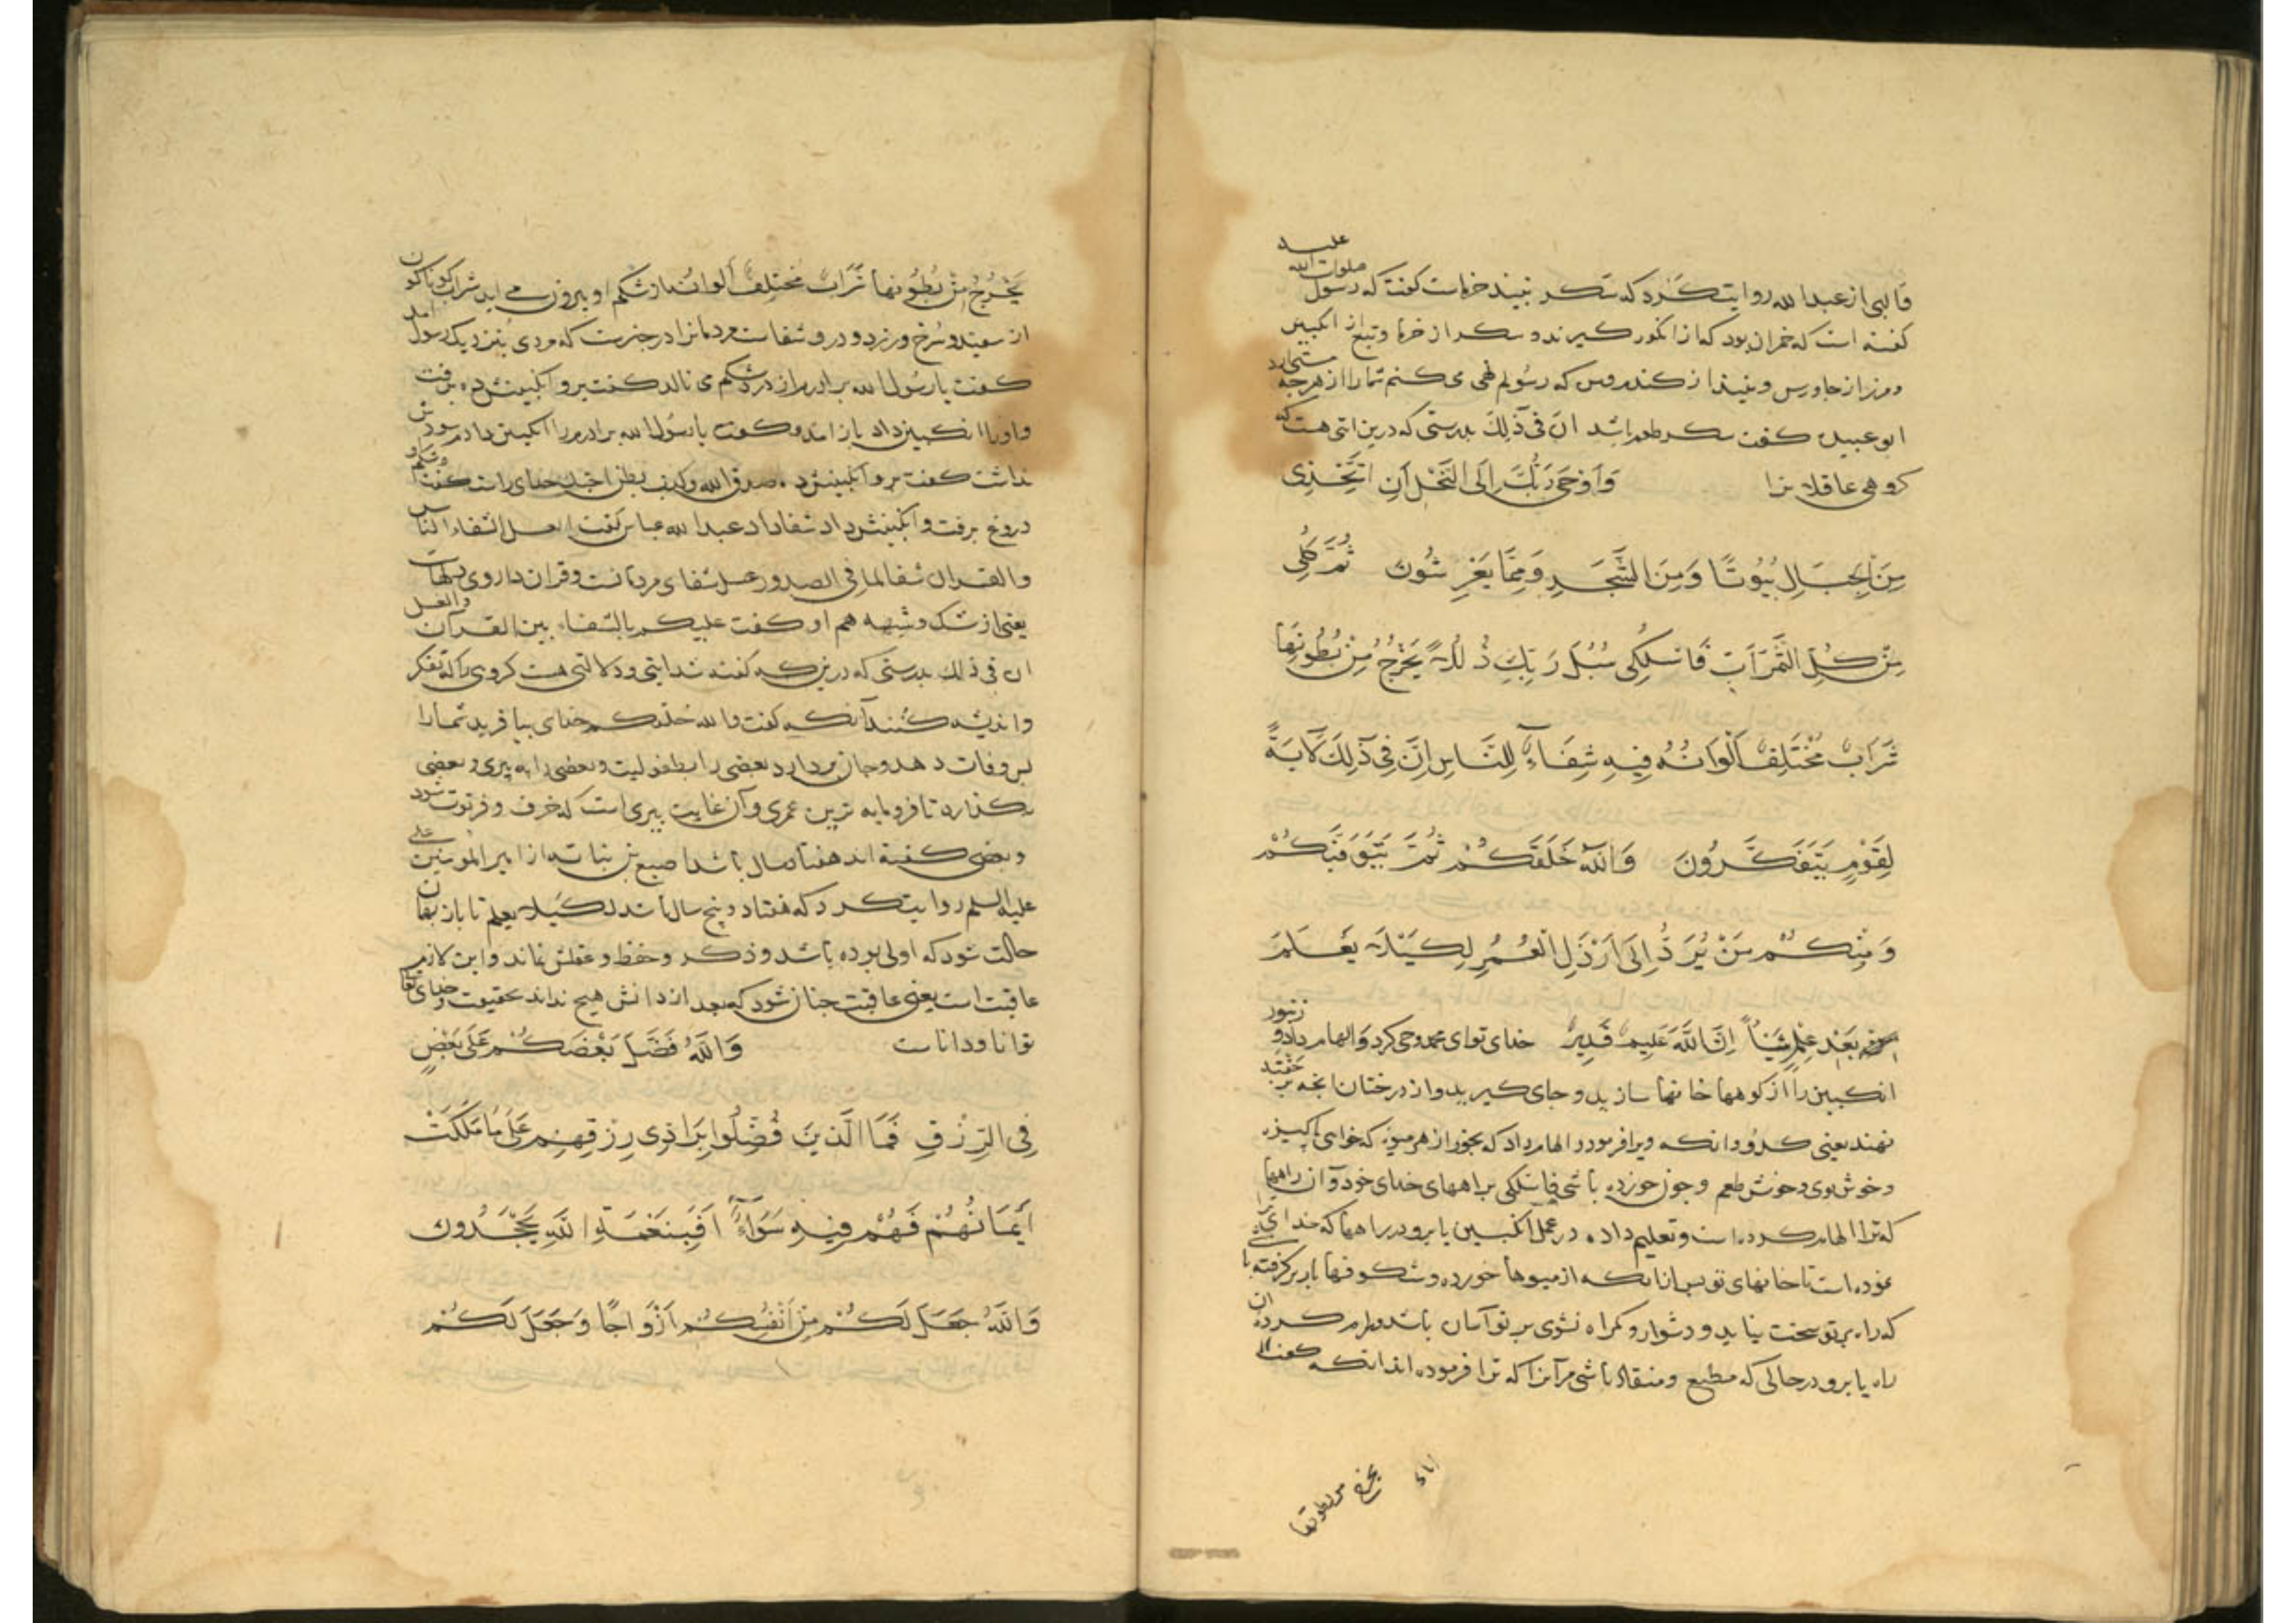 علیه
صلوات الله
قالبی از عبدا لله روایت کرد که سکر نبیند خرماست کفت که رسول
کفته است که خمر ان بود که از انکور کیرند و سکر از خرما و تبع از انکبین
و مزر از جاورس و نبیذ از کندم و من که رسولم نهی می کنم شما را از هرجه مستی ارد
ابو عبیده کفت سکر طعم باشد ان فی ذلک بدرستی که درین ایتی هست که
کروهی عاقلانرا وَاَوْحَی رَبُّکَ اِلَی النَّحْلِ اَنِ اتَّخِذِی
مِنَ الْجِبَالِ بُیُوتًا وَمِنَ الشَّجَرِ وَمِمَّا یَعْرِشُونَ ثُمَّ کُلِی
مِنْ کُلِّ الثَّمَرَاتِ فَاسْلُکِی سُبُلَ رَبِّکِ ذُلُلًا یَخْرُجُ مِنْ بُطُونِهَا
شَرَابٌ مُخْتَلِفٌ اَلْوَانُهُ فِیهِ شِفَاءٌ لِلنَّاسِ اِنَّ فِی ذَلِکَ لَآیَةً
لِقَوْمٍ یَتَفَکَّرُونَ وَاللّٰهُ خَلَقَکُمْ ثُمَّ یَتَوَفَّیکُمْ
وَمِنْکُمْ مَنْ یُرَدُّ اِلَی اَرْذَلِ الْعُمُرِ لِکَیْلَا یَعْلَمَ
بَعْدَ عِلْمٍ شَیْئًا اِنَّ اللَّهَ عَلِیمٌ قَدِیرٌ خدای توای محمد وحی کرد و الهام داد و زنبور
انکبین را از کوهها خانها سازید و جای کیرید و از درختان انجه
نهند یعنی کندو و انکه ویرا فرمود و الهام داد که بخور از هر میوه که خواهی پاکیزه
و خوش بوی و خوش طعم و جون خورده باشی فاسلکی براههای خدای خود و آن راهها
که ترا الهام کرده است و تعلیم داده در عمل انکبین یا برو در راهها که خدای
نموده است تا خانهای تو پس ازانکه از میوها خورده و شکوفها باربر کرفته
که راه بر تو سخت نیاید و دشوار و کمراه نشوی بر تو آسان باشد و رام کرده
راه یا برو در حالی که مطیع و منقاد باشی مر آنرا که ترا فرموده اند انکه کفت
یخرج من بطونها
یَخْرُجُ مِنْ بُطُونِهَا شَرَابٌ مُخْتَلِفٌ اَلْوَانُهُ از شکم او بیرون می اید شراب کوناکون
از سفید و سرخ و زرد و درو شفاست مردمانرا در خبرست که مردی بنزدیک رسول امد
کفت یا رسول الله برادرم از درد شکم می نالد کفت برو انکبینش ده برفت
و اورا انکبین داد باز امد و کفت یا رسول الله برادرم را انکبین دادم سودش
نداشت کفت برو انکبینش ده صدق الله و کذب بطن اخیک خدای راست کفت و شکم او
دروغ برفت و انکبینش داد شفا داد عبدا لله عباس کفت العسل شفاء الناس
والقران شفا لما فی الصدور عسل شفای مردمانست و قران داروی دلهاست
یعنی از شک و شبهه هم او کفت علیکم بالشفاء بین القرآن والعسل
ان فی ذلک بدرستی که درین که کفته شد ایتی و دلالتی هست کروهی را که تفکر
و اندیشه کنند آنکه کفت والله خلقکم خدای بیافرید شما را
پس وفات دهد و جان بردارد بعضی را بطفولیت و بعضی را به پیری و بعضی
بکذارد تا فرومایه ترین عمری و آن غایت پیری است که خرف و فرتوت شود
و بعضی کفته اند هفتاد سال باشد اصبغ بن نباته از امیر المومنین علی
علیه السلم روایت کرد که هفتاد و پنج سال باشد لکیلا یعلم تا باز بهمان
حالت شود که اولی بوده باشد و ذکر و حفظ و عقلش نماند و این لام
عاقبت است یعنی عاقبت جنان شود که بعد از دانش هیج نداند بحقیقت و خدای تعالی
توانا و داناست وَاللّٰهُ فَضَّلَ بَعْضَکُمْ عَلَی بَعْضٍ
فِی الرِّزْقِ فَمَا الَّذِینَ فُضِّلُوا بِرَادِّی رِزْقِهِمْ عَلَی مَا مَلَکَتْ
اَیْمَانُهُمْ فَهُمْ فِیهِ سَوَاءٌ اَفَبِنِعْمَةِ اللّٰهِ یَجْحَدُونَ
وَاللّٰهُ جَعَلَ لَکُمْ مِنْ اَنْفُسِکُمْ اَزْوَاجًا وَجَعَلَ لَکُمْ